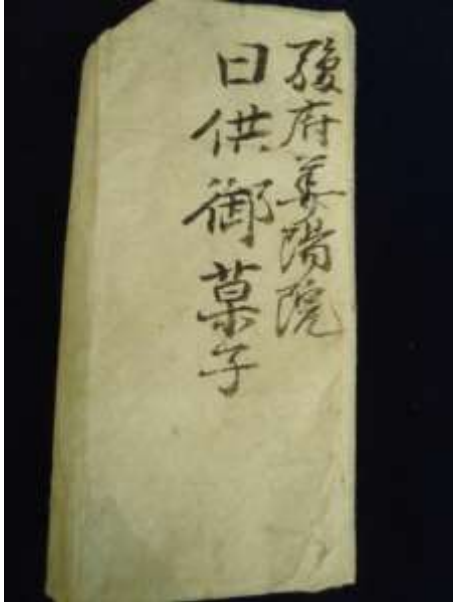 駿府華陽院
日供御菓子